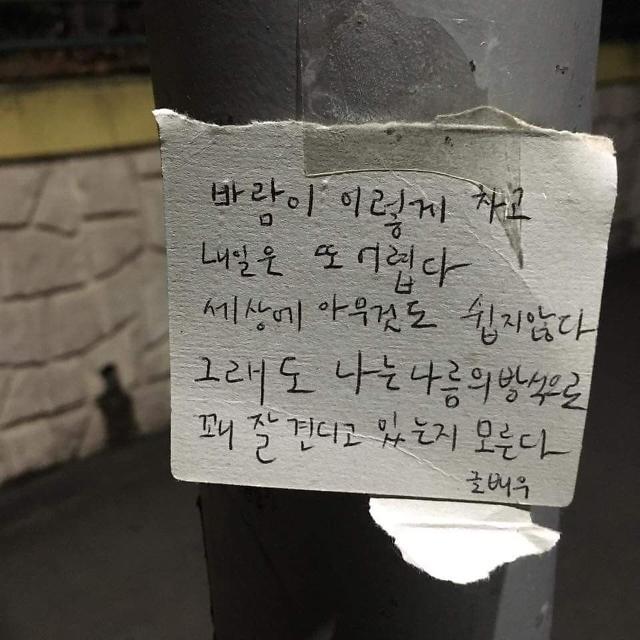 바람이 이렇게 차고
내일은 또 어렵다
세상에 아무것도 쉽지않다
그래도 나는 나름의 방식으로
꽤 잘 견디고 있는지 모른다
글배우